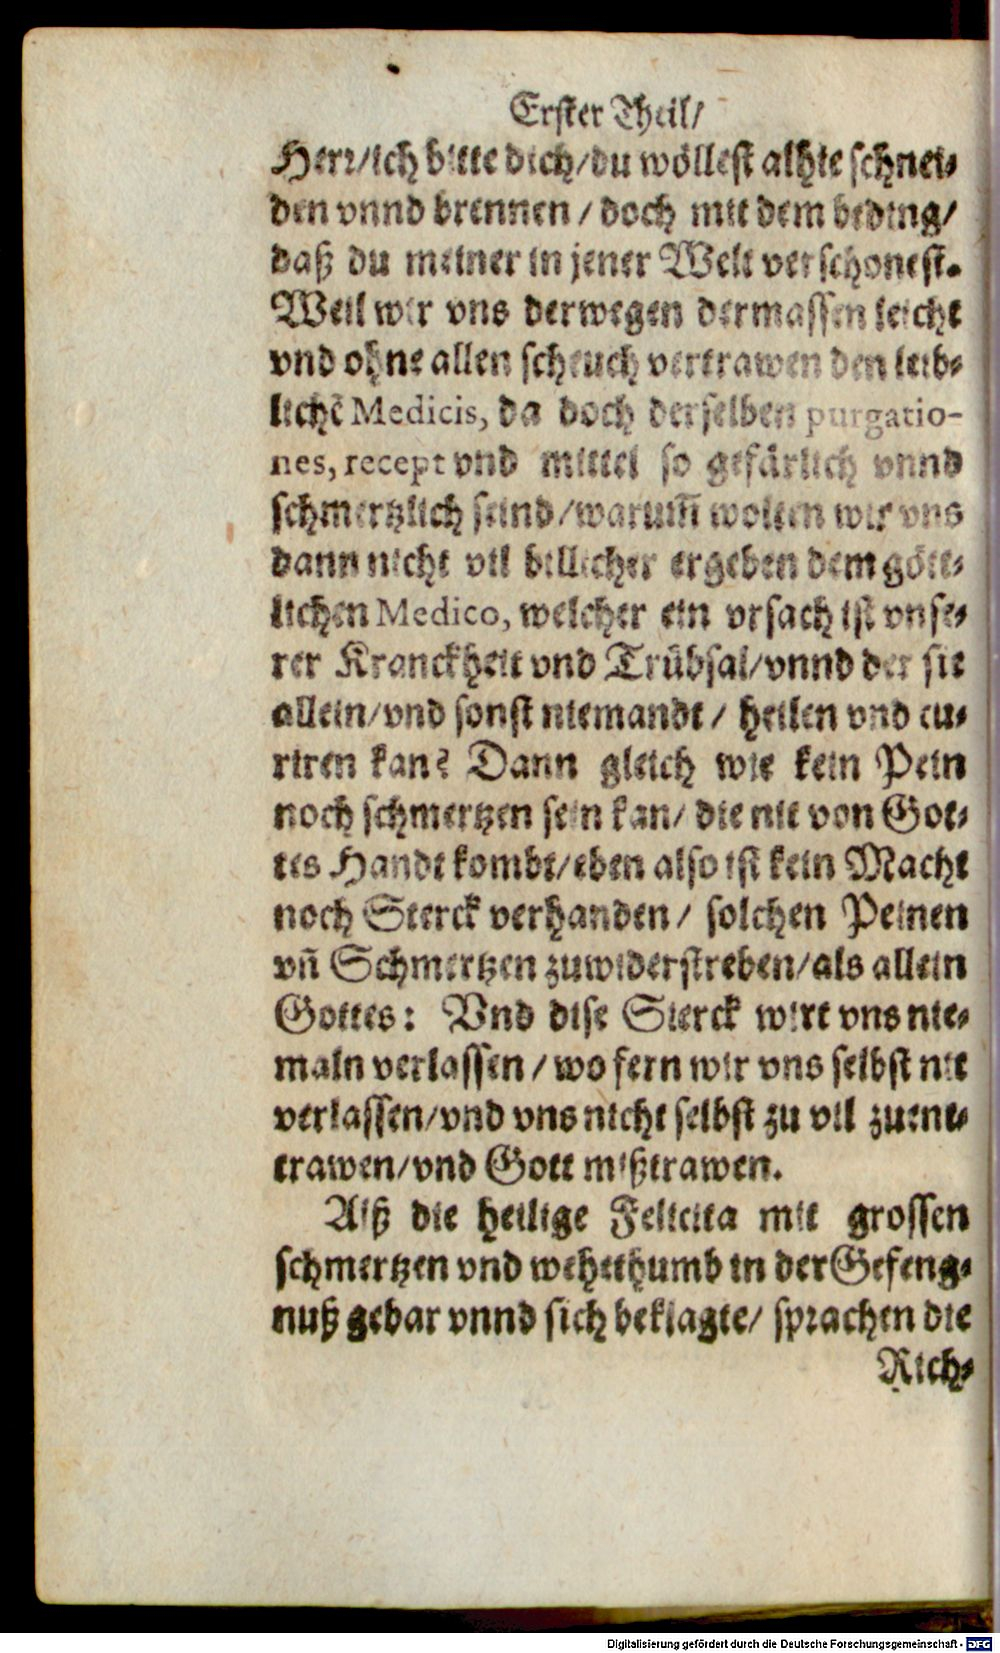 Erster Theil/
Herr/ich bitte dich/du wöllest alhie schnei-
den vnnd brennen / doch mit dem beding/
daß du meiner in jener Welt verschonest.
Weil wir vns derwegen dermassen leicht
vnd ohne allen scheuch vertrawen den leib-
lichẽ Medicis, da doch derselben purgatio-
nes, recept vnd mittel so gefärlich vnnd
schmertzlich seind/warum̃ wolten wir vns
dann nicht vil billicher ergeben dem gött-
lichen Medico, welcher ein vrsach ist vnse-
rer Kranckheit vnd Trübsal/vnnd der sie
allein/vnd sonst niemandt / heilen vnd cu-
riren kan? Dann gleich wie kein Pein
noch schmertzen sein kan/ die nit von Got-
tes Handt kombt/eben also ist kein Macht
noch Sterck verhanden/ solchen Peinen
vñ Schmertzen zuwiderstreben/als allein
Gottes: Vnd dise Sterck wirt vns nie-
maln verlassen / wo fern wir vns selbst nit
verlassen/vnd vns nicht selbst zu vil zuent-
trawen/vnd Gott mißtrawen.
Alß die heilige Felicita mit grossen
schmertzen vnd wehetthumb in der Gefeng-
nuß gebar vnnd sich beklagte/ sprachen die
Rich-
Digitalisierung gefördert durch die Deutsche Forschungsgemeinschaft - DFG